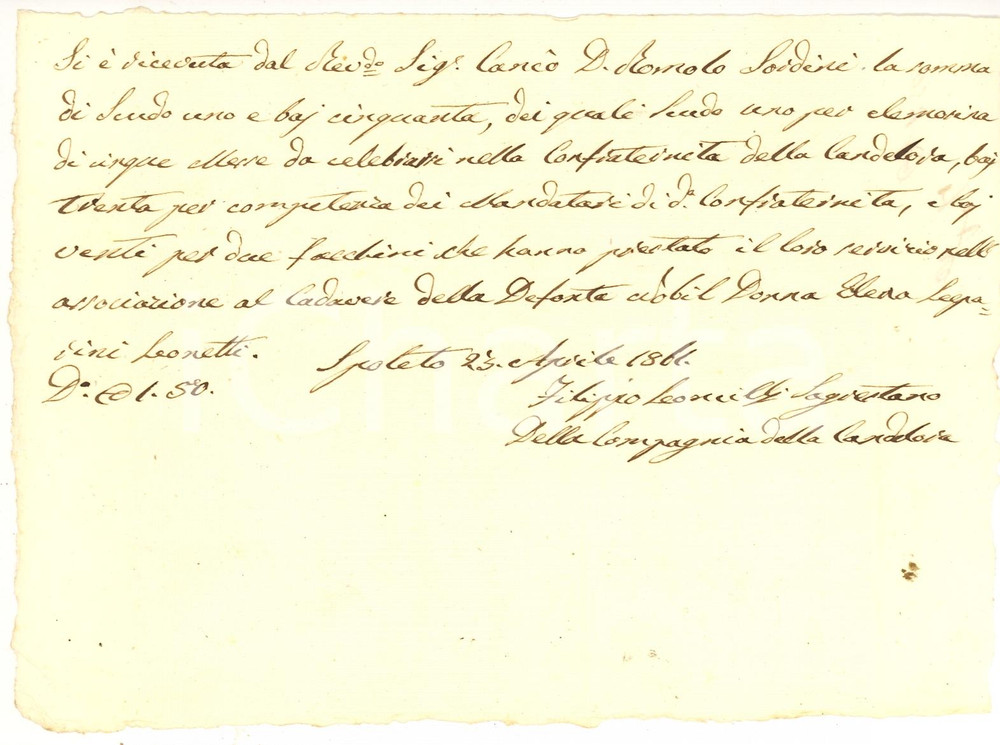 Si è ricevuta dal Revdo Sigr. Canco D. Romolo Sordini la somma
di Scudo uno e baj cinquanta, dei quali Scudo uno per elemosina
di cinque Messe da celebrarsi nella Confraternita della Candelora, baj
trenta per competenza dei Mandatari di da. Confraternita, e baj
venti per due facchini che hanno prestato il loro servizio nell'
associazione al Cadavere della Defonta Nobil Donna Elena Lepa-
rini Leonetti. Spoleto 23. Aprile 1861.
Do. 1. 50. Filippo Sagrestano
Della Compagnia della Candelora